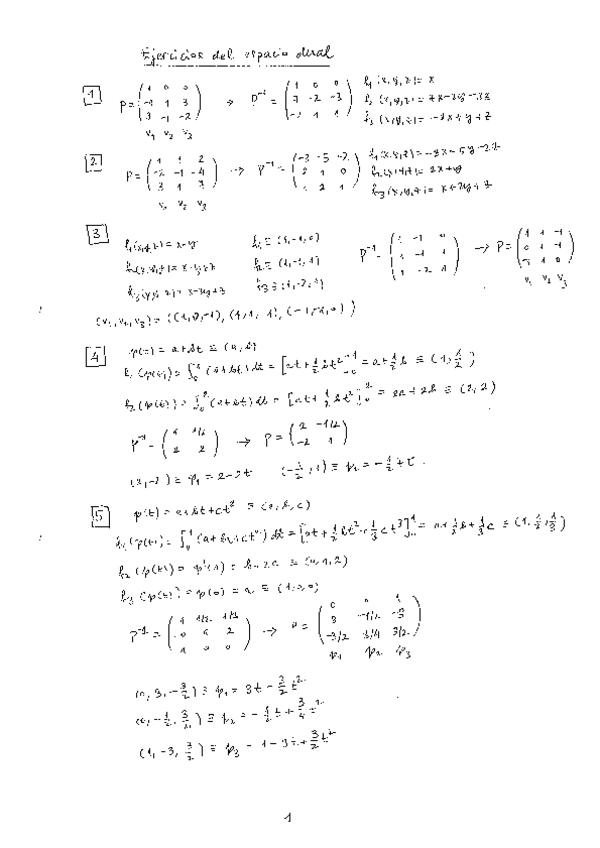 Ejercicios del espacio dual
1 P = ( 1 0 0 / -1 1 3 / 3 -1 -2 ) → P⁻¹ = ( 1 0 0 / 7 -2 -3 / -2 1 1 )
v₁ v₂ v₃
f₁(x,y,z) = x
f₂(x,y,z) = 7x-2y-3z
f₃(x,y,z) = -2x+y+z
2 P = ( 1 1 2 / -2 -1 -4 / 3 1 7 ) → P⁻¹ = ( -3 -5 -2 / 2 1 0 / 1 2 1 )
v₁ v₂ v₃
f₁(x,y,z) = -3x-5y-2z
f₂(x,y,z) = 2x+y
f₃(x,y,z) = x+2y+z
3
f₁(x,y,z) = x-y f₁ ≡ (1,-1,0)
f₃(x,y,z) = x-2y+z f₃ ≡ (1,-2,1)
P⁻¹ = → P =
v₁ v₂ v₃
(v₁,v₂,v₃) =
4 p(t) = a+bt ≡ (a,b)
f₁(p(t)) = ∫₀¹ (a+bt) dt = [at+½bt²]₀¹ = a+½b ≡ (1,½)
f₂(p(t)) = ∫₀² (a+bt) dt = [at+½bt²]₀² = 2a+2b ≡ (2,2)
P⁻¹ = ( 1 1/2 / 2 2 ) → P = ( 2 -1/2 / -2 1 )
(2,-2) ≡ p₁ = 2-2t (-½,1) ≡ p₂ = -½+t
5 p(t) = a+bt+ct² ≡ (a,b,c)
f₁(p(t)) = ∫₀¹ (a+bt+ct²) dt = [at+½bt²+⅓ct³]₀¹ = a+½b+⅓c ≡ (1,½,⅓)
f₂(p(t)) = p'(1) = b+2c ≡ (0,1,2)
f₃(p(t)) = p(0) = a ≡ (1,0,0)
P⁻¹ = ( 1 1/2 1/3 / 0 1 2 / 1 0 0 ) → P = ( 0 0 1 / 3 -1/2 -3 / -3/2 3/4 3/2 )
p₁ p₂ p₃
(0,3,-3/2) ≡ p₁ = 3t-3/2t²
≡ p₂ = -½t+¾t²
(1,-3,3/2) ≡ p₃ = 1-3t+3/2t²
1